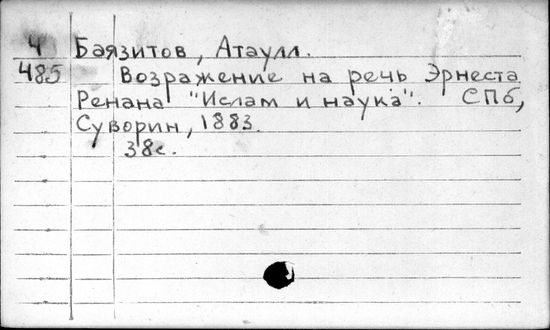 4 Баязитов, Атаулл.
485 Возражение на речь Эрнеста
Ренана "Ислам и наука". СПб,
Суворин, 1883.
38с.